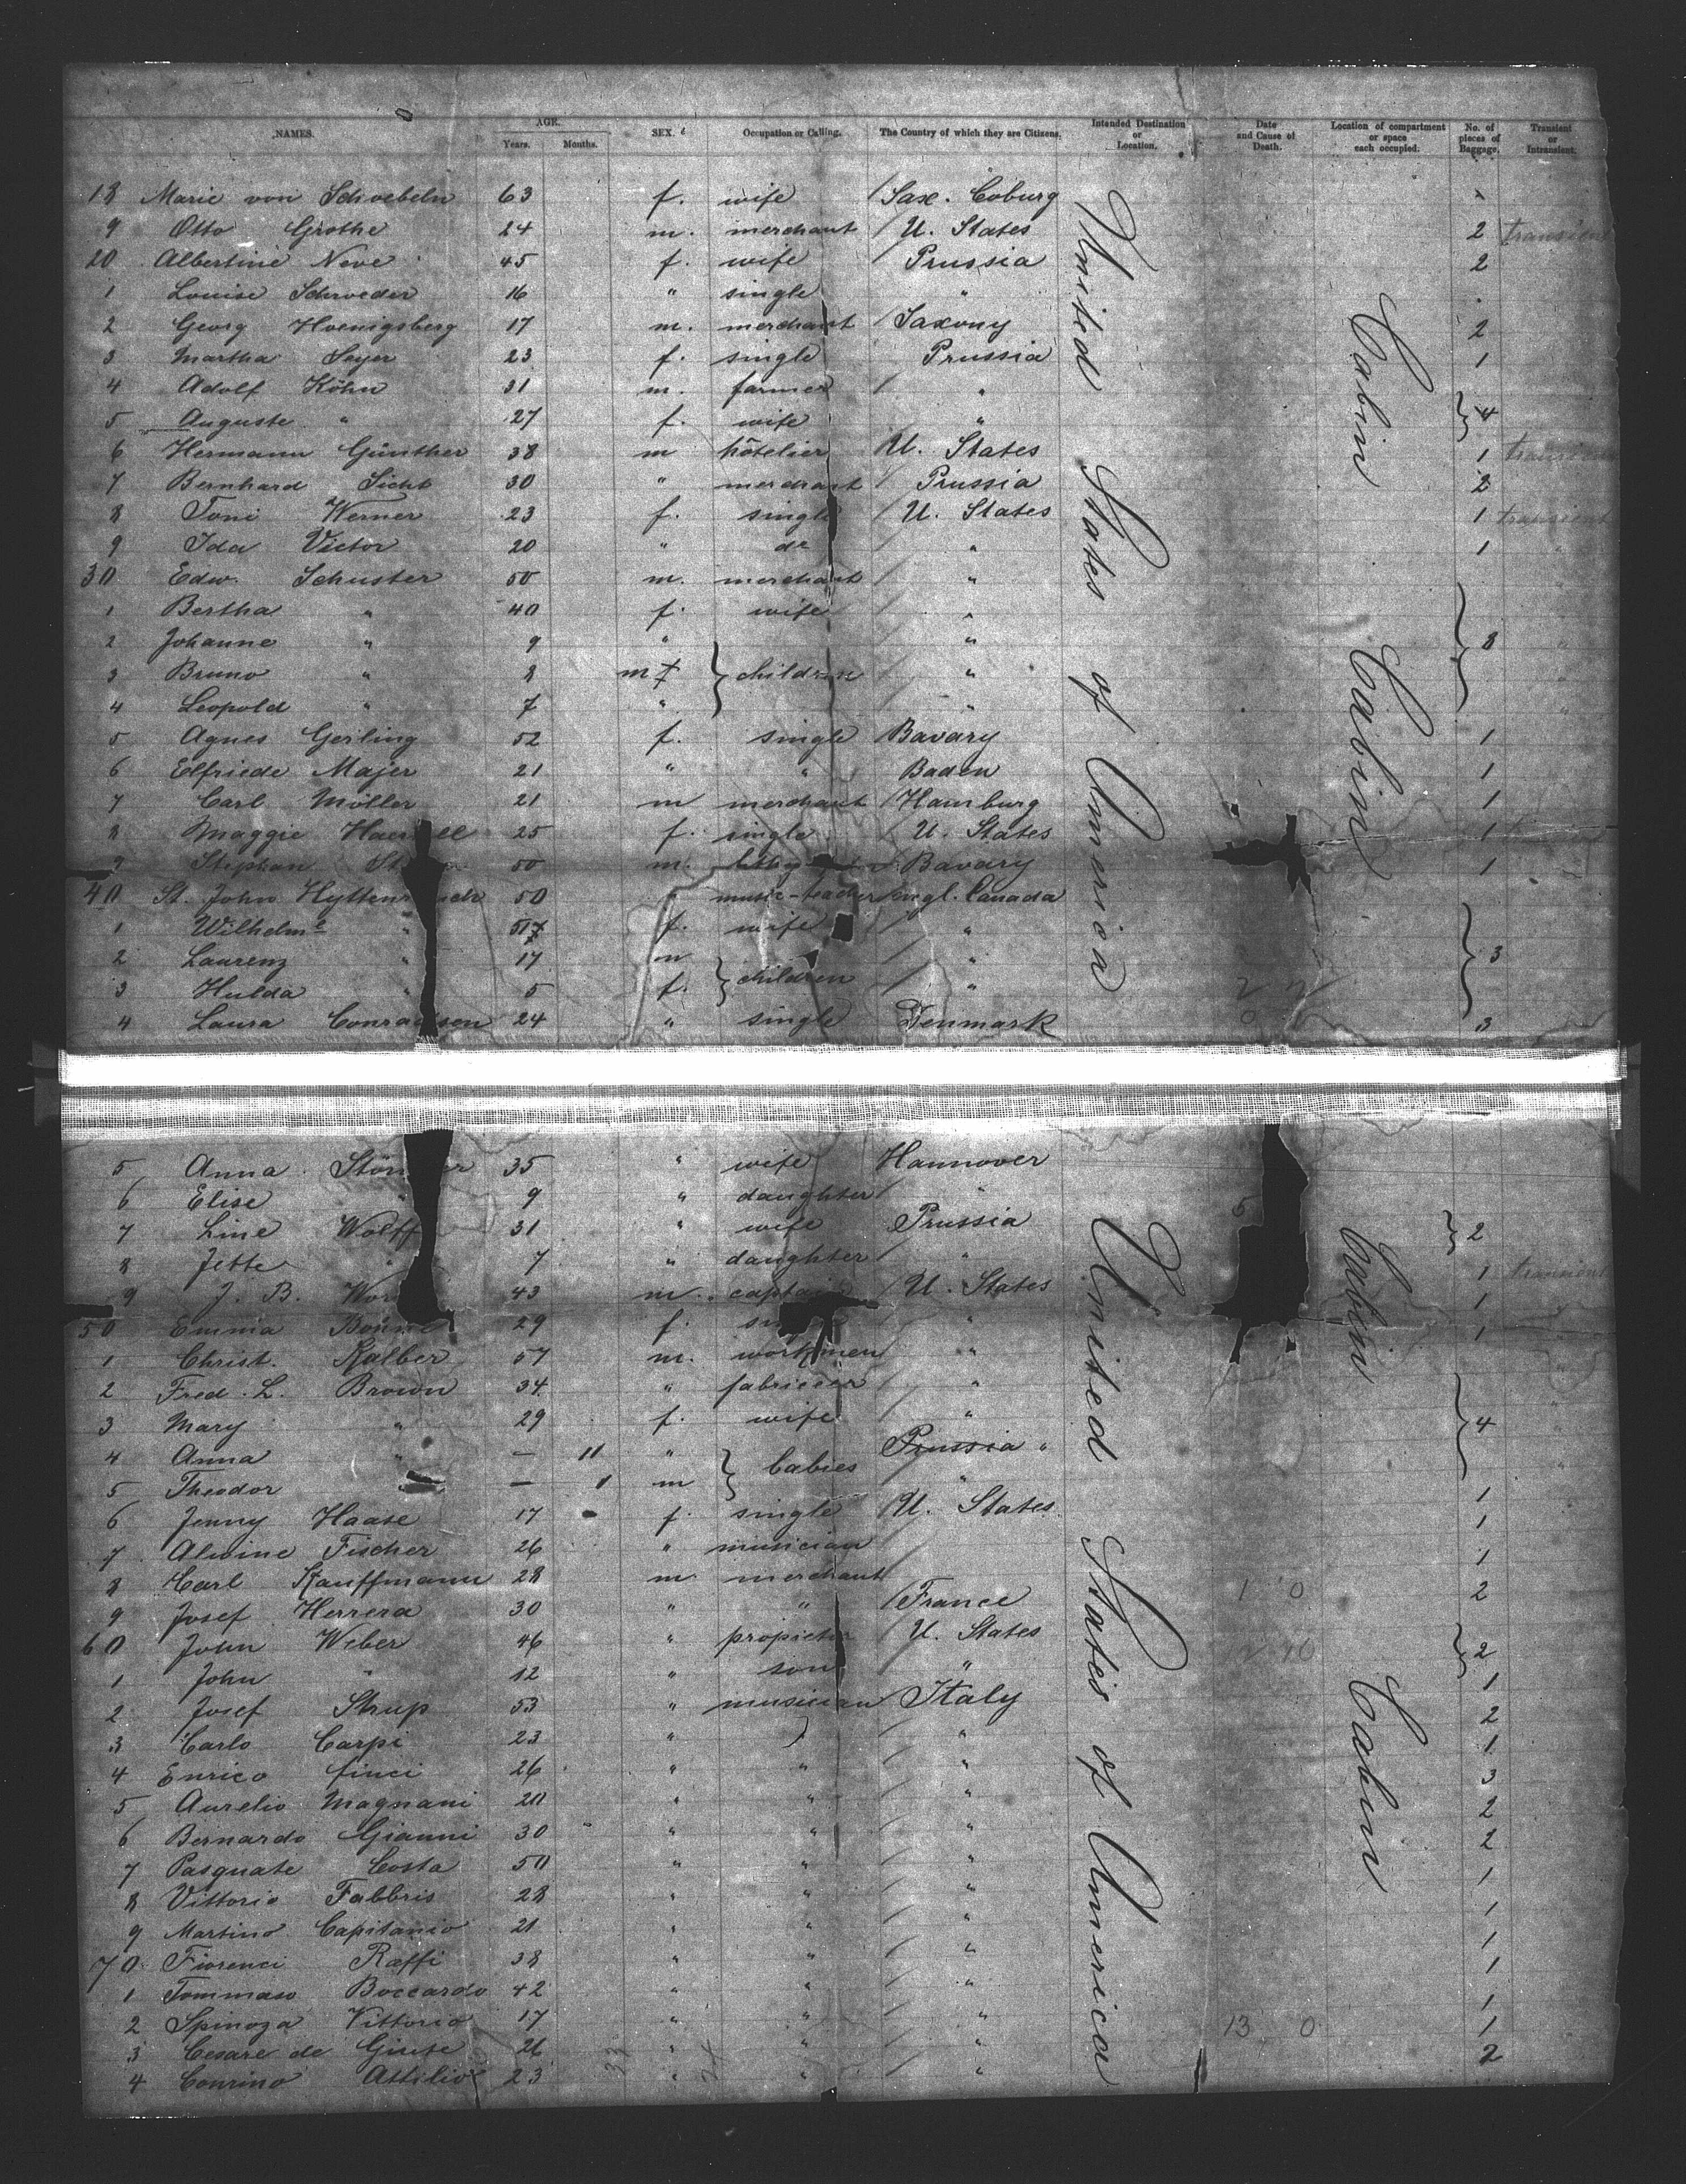 NAMES. AGE. Years. Months. SEX. Occupation or Calling. The Country of which they are Citizens. Intended Destination or Location. Date and Cause of Death. Location of compartment or space each occupied. No. of pieces of Baggage. Transient or Intransient.
United States of America
Cabin Cabin
18 Marie von Schoebeln 63 f. wife Sax. Coburg
9 Otto Grothe 24 m. merchant U. States 2 transient
20 Albertine Neve 45 f. wife Prussia 2
1 Louise Schroeder 16 " single "
2 Georg Hoenigsberg 17 m. merchant Saxony 2
3 Martha Seyer 23 f. single Prussia 1
4 Adolf Köhn 31 m. farmer "
5 Auguste " 27 f. wife " 4
6 Hermann Günther 38 m hôtelier U. States 1 transient
7 Bernhard Sicht 30 " merchant Prussia 2
8 Toni Werner 23 f. single U. States 1 transient
9 Ida Victor 20 " do " 1
30 Edw. Schuster 50 m. merchant "
1 Bertha " 40 f. wife "
2 Johanne " 9 " " 8
3 Bruno " 8 m children "
4 Leopold " 7 " "
5 Agnes Gerling 52 f. single Bavary 1
6 Elfriede Majer 21 " " Baden 1
7 Carl Möller 21 m merchant Hamburg 1
8 Maggie 25 f. single U. States 1
9 Stephan 50 m. Bavary 1
40 St. John 50 " music-teacher Engl. Canada
1 Wilhelme " f. wife "
2 Laurenz " 17 m " 3
3 Hulda " 5 f. children "
4 Laura Conradsen 24 " single Denmark 3
United States of America
Cabin Cabin
5 Anna 35 " wife Hannover
6 Elise " 9 " daughter "
7 Line Wolff 31 " wife Prussia 2
8 Jette " 7 " daughter "
9 J. B. 43 m. captain U. States 1 transient
50 Emma 29 f. "
1 Christ. Kalber 57 m. workmen "
2 Fred. L. Brown 34 " fabricier "
3 Mary " 29 f. wife " 4
4 Anna " — 11 " babies Prussia "
5 Theodor — 1 m "
6 Jenny Haase 17 f. single U. States 1
7 Alwine Fischer 26 " musician 1
8 Carl Kauffmann 28 m merchant 1
9 Josef Herrera 30 " " France 2
60 John Weber 46 " propietor U. States
1 John " 12 " son " 2
2 Josef Strup 53 " musician Italy 1
3 Carlo Carpi 23 " " 2
4 Enrico finci 26 " " " 1
5 Aurelio Magnani 20 " " " 3
6 Bernardo Gianni 30 " " " 2
7 Pasquate Costa 50 " " " 2
8 Vittorio Fabbris 28 " " " 1
9 Martino Capitanio 21 " " " 1
70 Fiorenci Raffi 38 " " " 1
1 Tommaso Boccardo 42 " " " 1
2 Spinoza Vittorio 17 " " " 1
3 Cesare de Giuse 26 " " " 1
4 Conrino Attilio 23 " " " 2